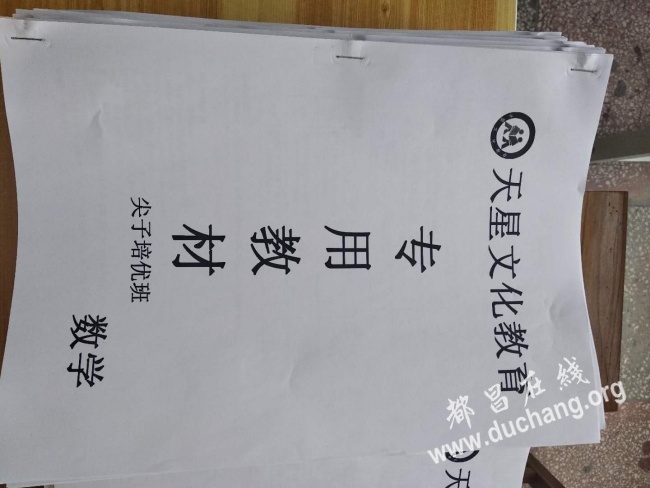 天星文化教育
专
用
教
材
尖子培优班
数学
天
都昌在线
www.duchang.org